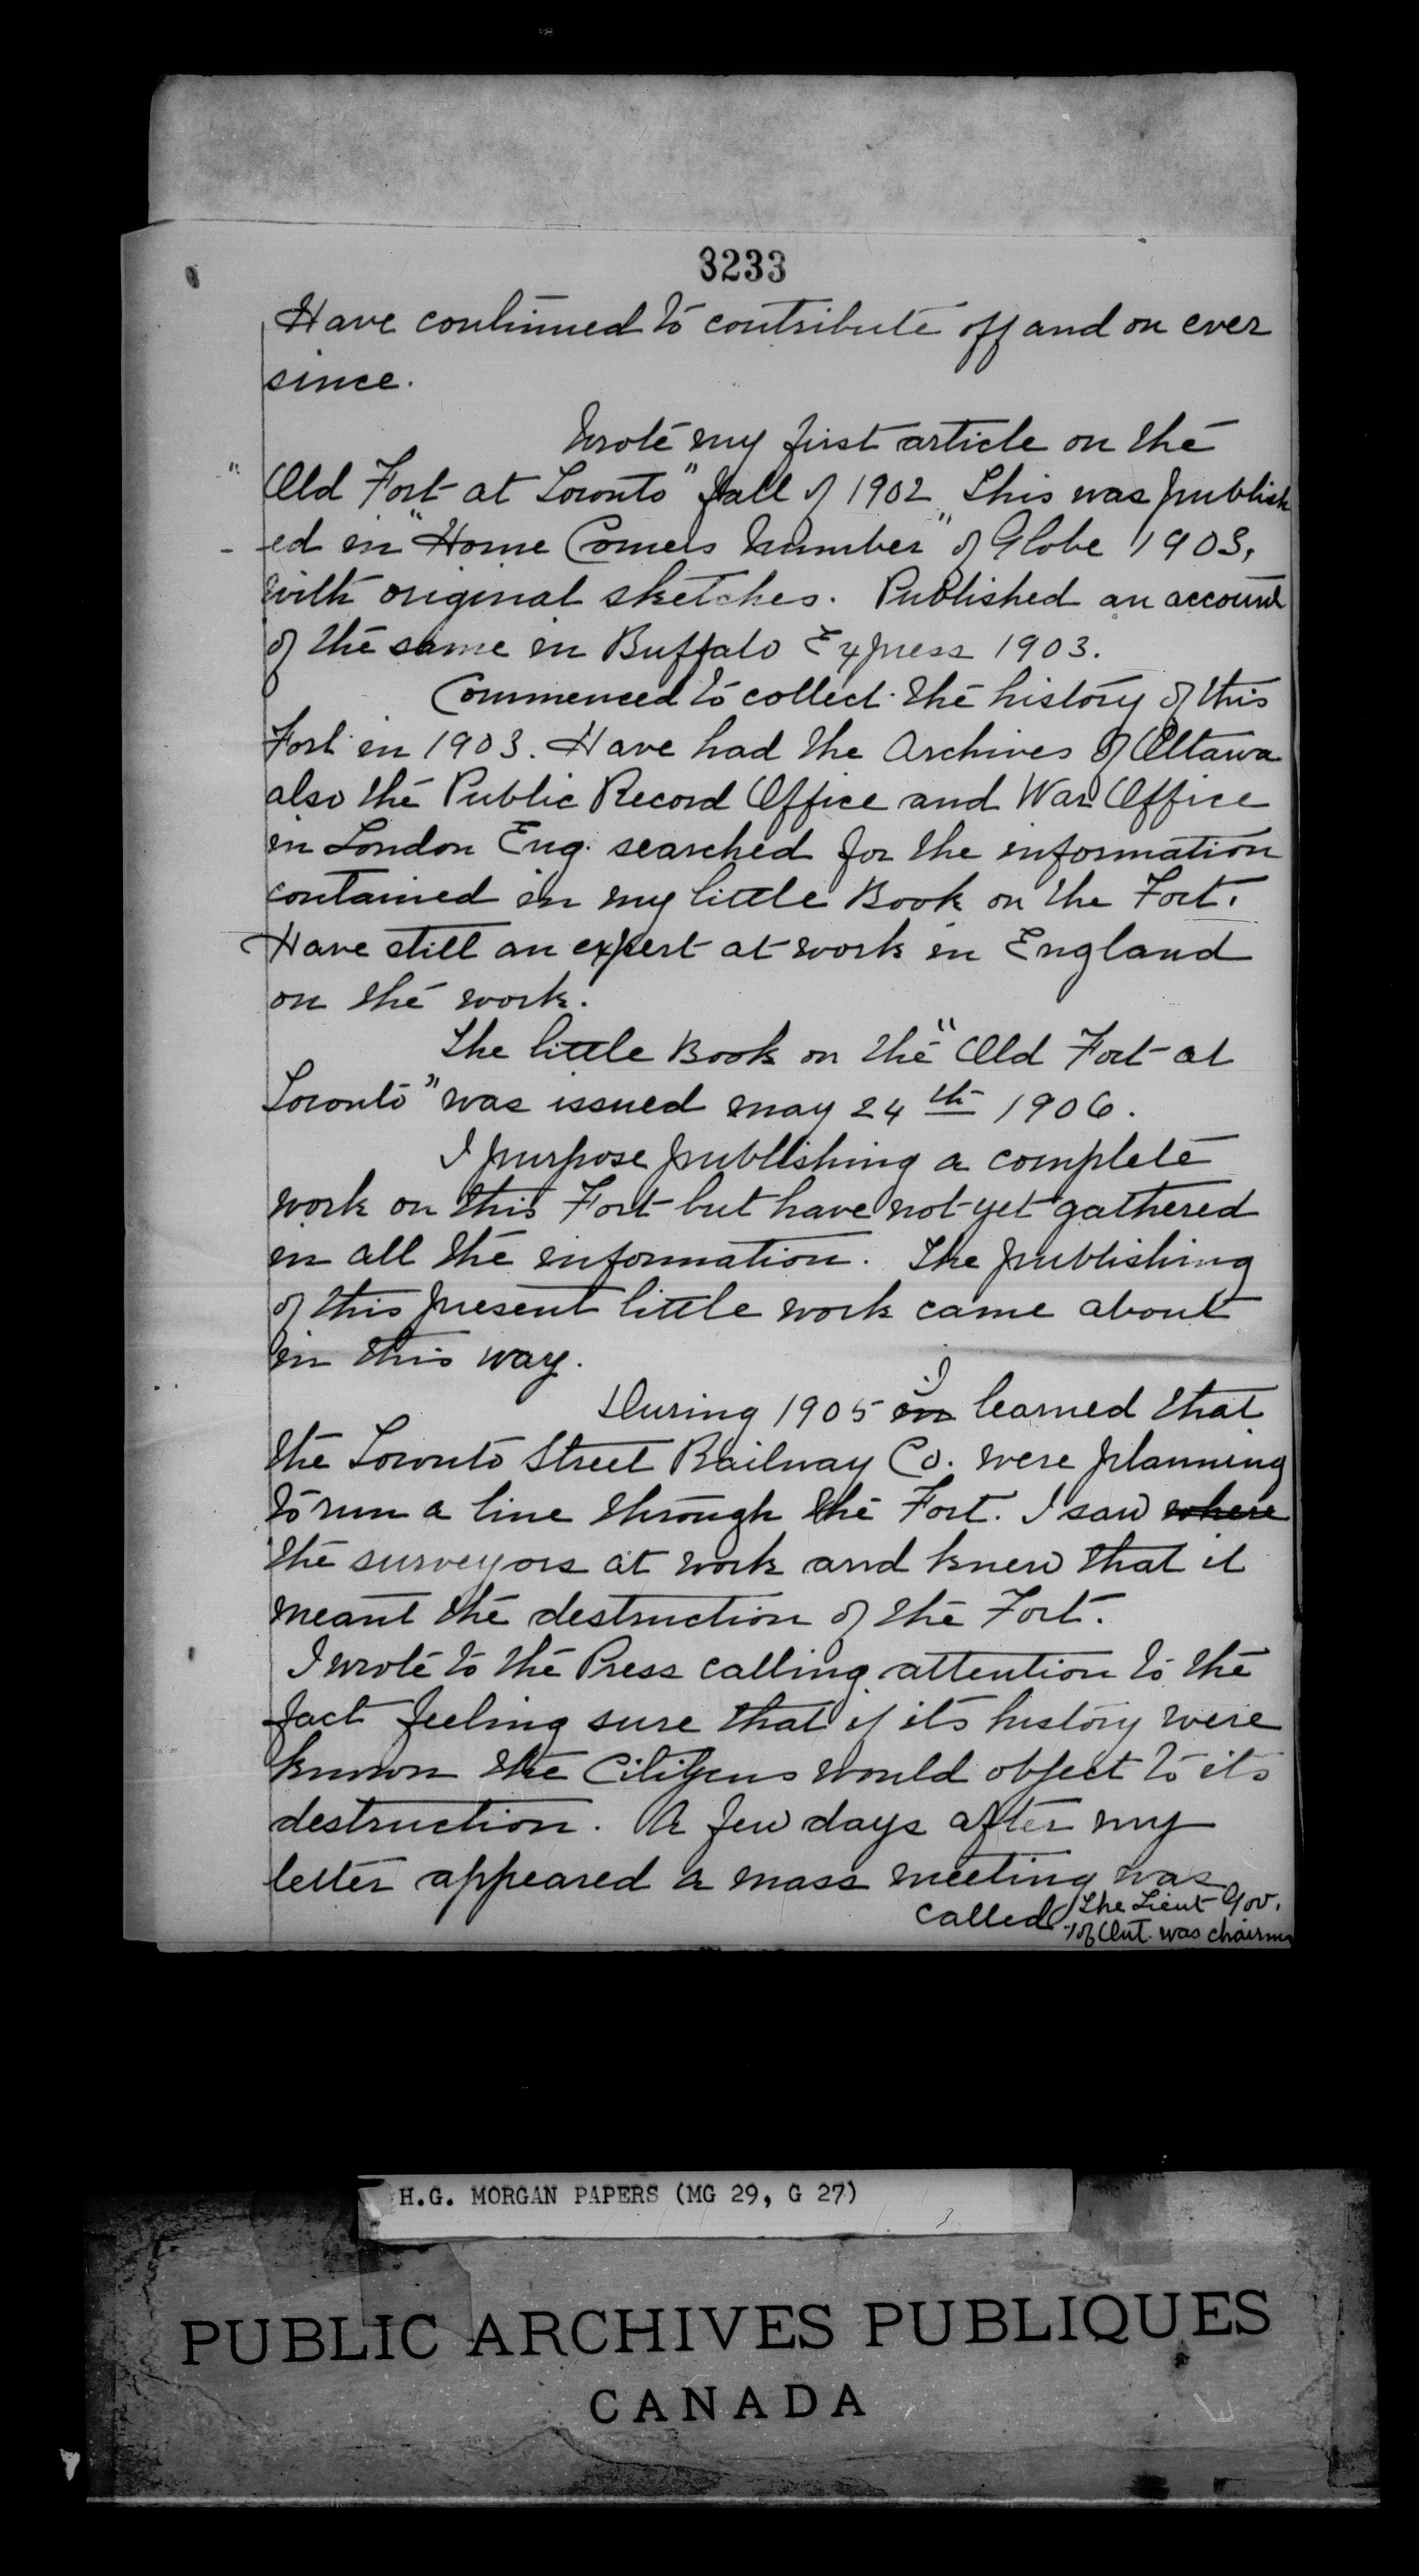 3233
Have continued to contribute off and on ever
since.
Wrote my first article on the
"Old Fort at Toronto" fall of 1902. This was publish
-ed in "Home Comers Number" of Globe 1903,
with original sketches. Published an account
of the same in Buffalo Express 1903.
Commenced to collect the history of this
Fort in 1903. Have had the Archives of Ottawa
also the Public Record Office and War Office
in London Eng. searched for the information
contained in my little Book on the Fort.
Have still an expert at work in England
on the work.
The little Book on the "Old Fort at
Toronto" was issued may 24th 1906.
I purpose publishing a complete
work on this Fort but have not yet gathered
in all the information. The publishing
of this present little work came about
in this way.
I
During 1905 in learned that
the Toronto Street Railway Co. were planning
to run a line through the Fort. I saw where
the surveyors at work and knew that it
meant the destruction of the Fort.
I wrote to the Press calling attention to the
fact feeling sure that if its history were
known the Citizens would object to its
destruction. A few days after my
letter appeared a mass meeting was
called The Lieut Gov.
of Ont. was chairma
H.G. MORGAN PAPERS (MG 29, G 27)
PUBLIC ARCHIVES PUBLIQUES
CANADA